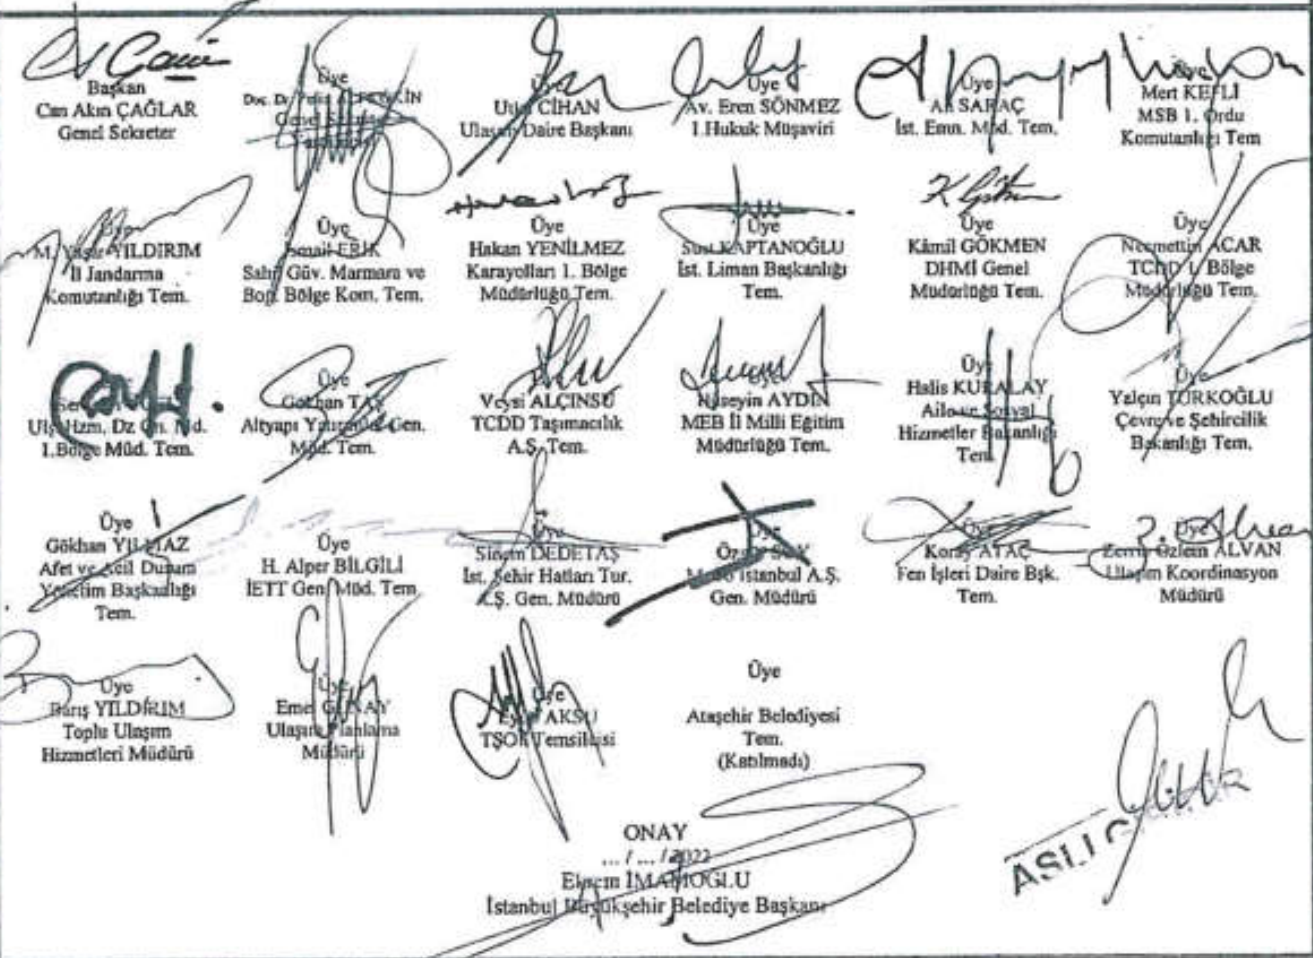 Başkan
Can Akın ÇAĞLAR
Genel Sekreter
Üye
Doç. Dr.
Üye
CİHAN
Ulaşım Daire Başkanı
Üye
Av. Eren SÖNMEZ
1.Hukuk Müşaviri
Üye
Ali SARAÇ
İst. Emn. Müd. Tem.
Üye
Mert KEFLİ
MSB 1. Ordu
Komutanlığı Tem
Üye
M. Yaşar YILDIRIM
İl Jandarma
Komutanlığı Tem.
Üye
İsmail ERİK
Sahil Güv. Marmara ve
Boğ. Bölge Kom. Tem.
Üye
Hakan YENİLMEZ
Karayolları 1. Bölge
Müdürlüğü Tem.
Suat KAPTANOĞLU
İst. Liman Başkanlığı
Tem.
Üye
Kâmil GÖKMEN
DHMİ Genel
Müdürlüğü Tem.
Üye
Necmettin ACAR
TCDD 1. Bölge
Müdürlüğü Tem.
1.Bölge Müd. Tem.
Üye
Gökhan TAŞ
Altyapı Gen.
Müd. Tem.
Veysi ALÇINSU
TCDD Taşımacılık
A.Ş. Tem.
Üye
Hüseyin AYDIN
MEB İl Milli Eğitim
Müdürlüğü Tem.
Üye
Halis KURALAY
Aile ve Sosyal
Hizmetler Bakanlığı
Tem.
Üye
Yalçın TÜRKOĞLU
Çevre ve Şehircilik
Bakanlığı Tem.
Üye
Gökhan YILMAZ
Afet ve Acil Durum
Yönetim Başkanlığı
Tem.
Üye
H. Alper BİLGİLİ
İETT Gen. Müd. Tem
Üye
Sinem DEDETAŞ
İst. Şehir Hatları Tur.
A.Ş. Gen. Müdürü
Üye
Metro İstanbul A.Ş.
Gen. Müdürü
Üye
Koray ATAÇ
Fen İşleri Daire Bşk.
Tem.
Üye
Özlem ALVAN
Ulaşım Koordinasyon
Müdürü
Üye
Barış YILDIRIM
Toplu Ulaşım
Hizmetleri Müdürü
Üye
Ulaşım Planlama
Müdürü
Üye
AKSU
TŞOF Temsilcisi
Üye
Ataşehir Belediyesi
Tem.
(Katılmadı)
ONAY
... / ... / 2022
Ekrem İMAMOĞLU
İstanbul Büyükşehir Belediye Başkanı
ASLI